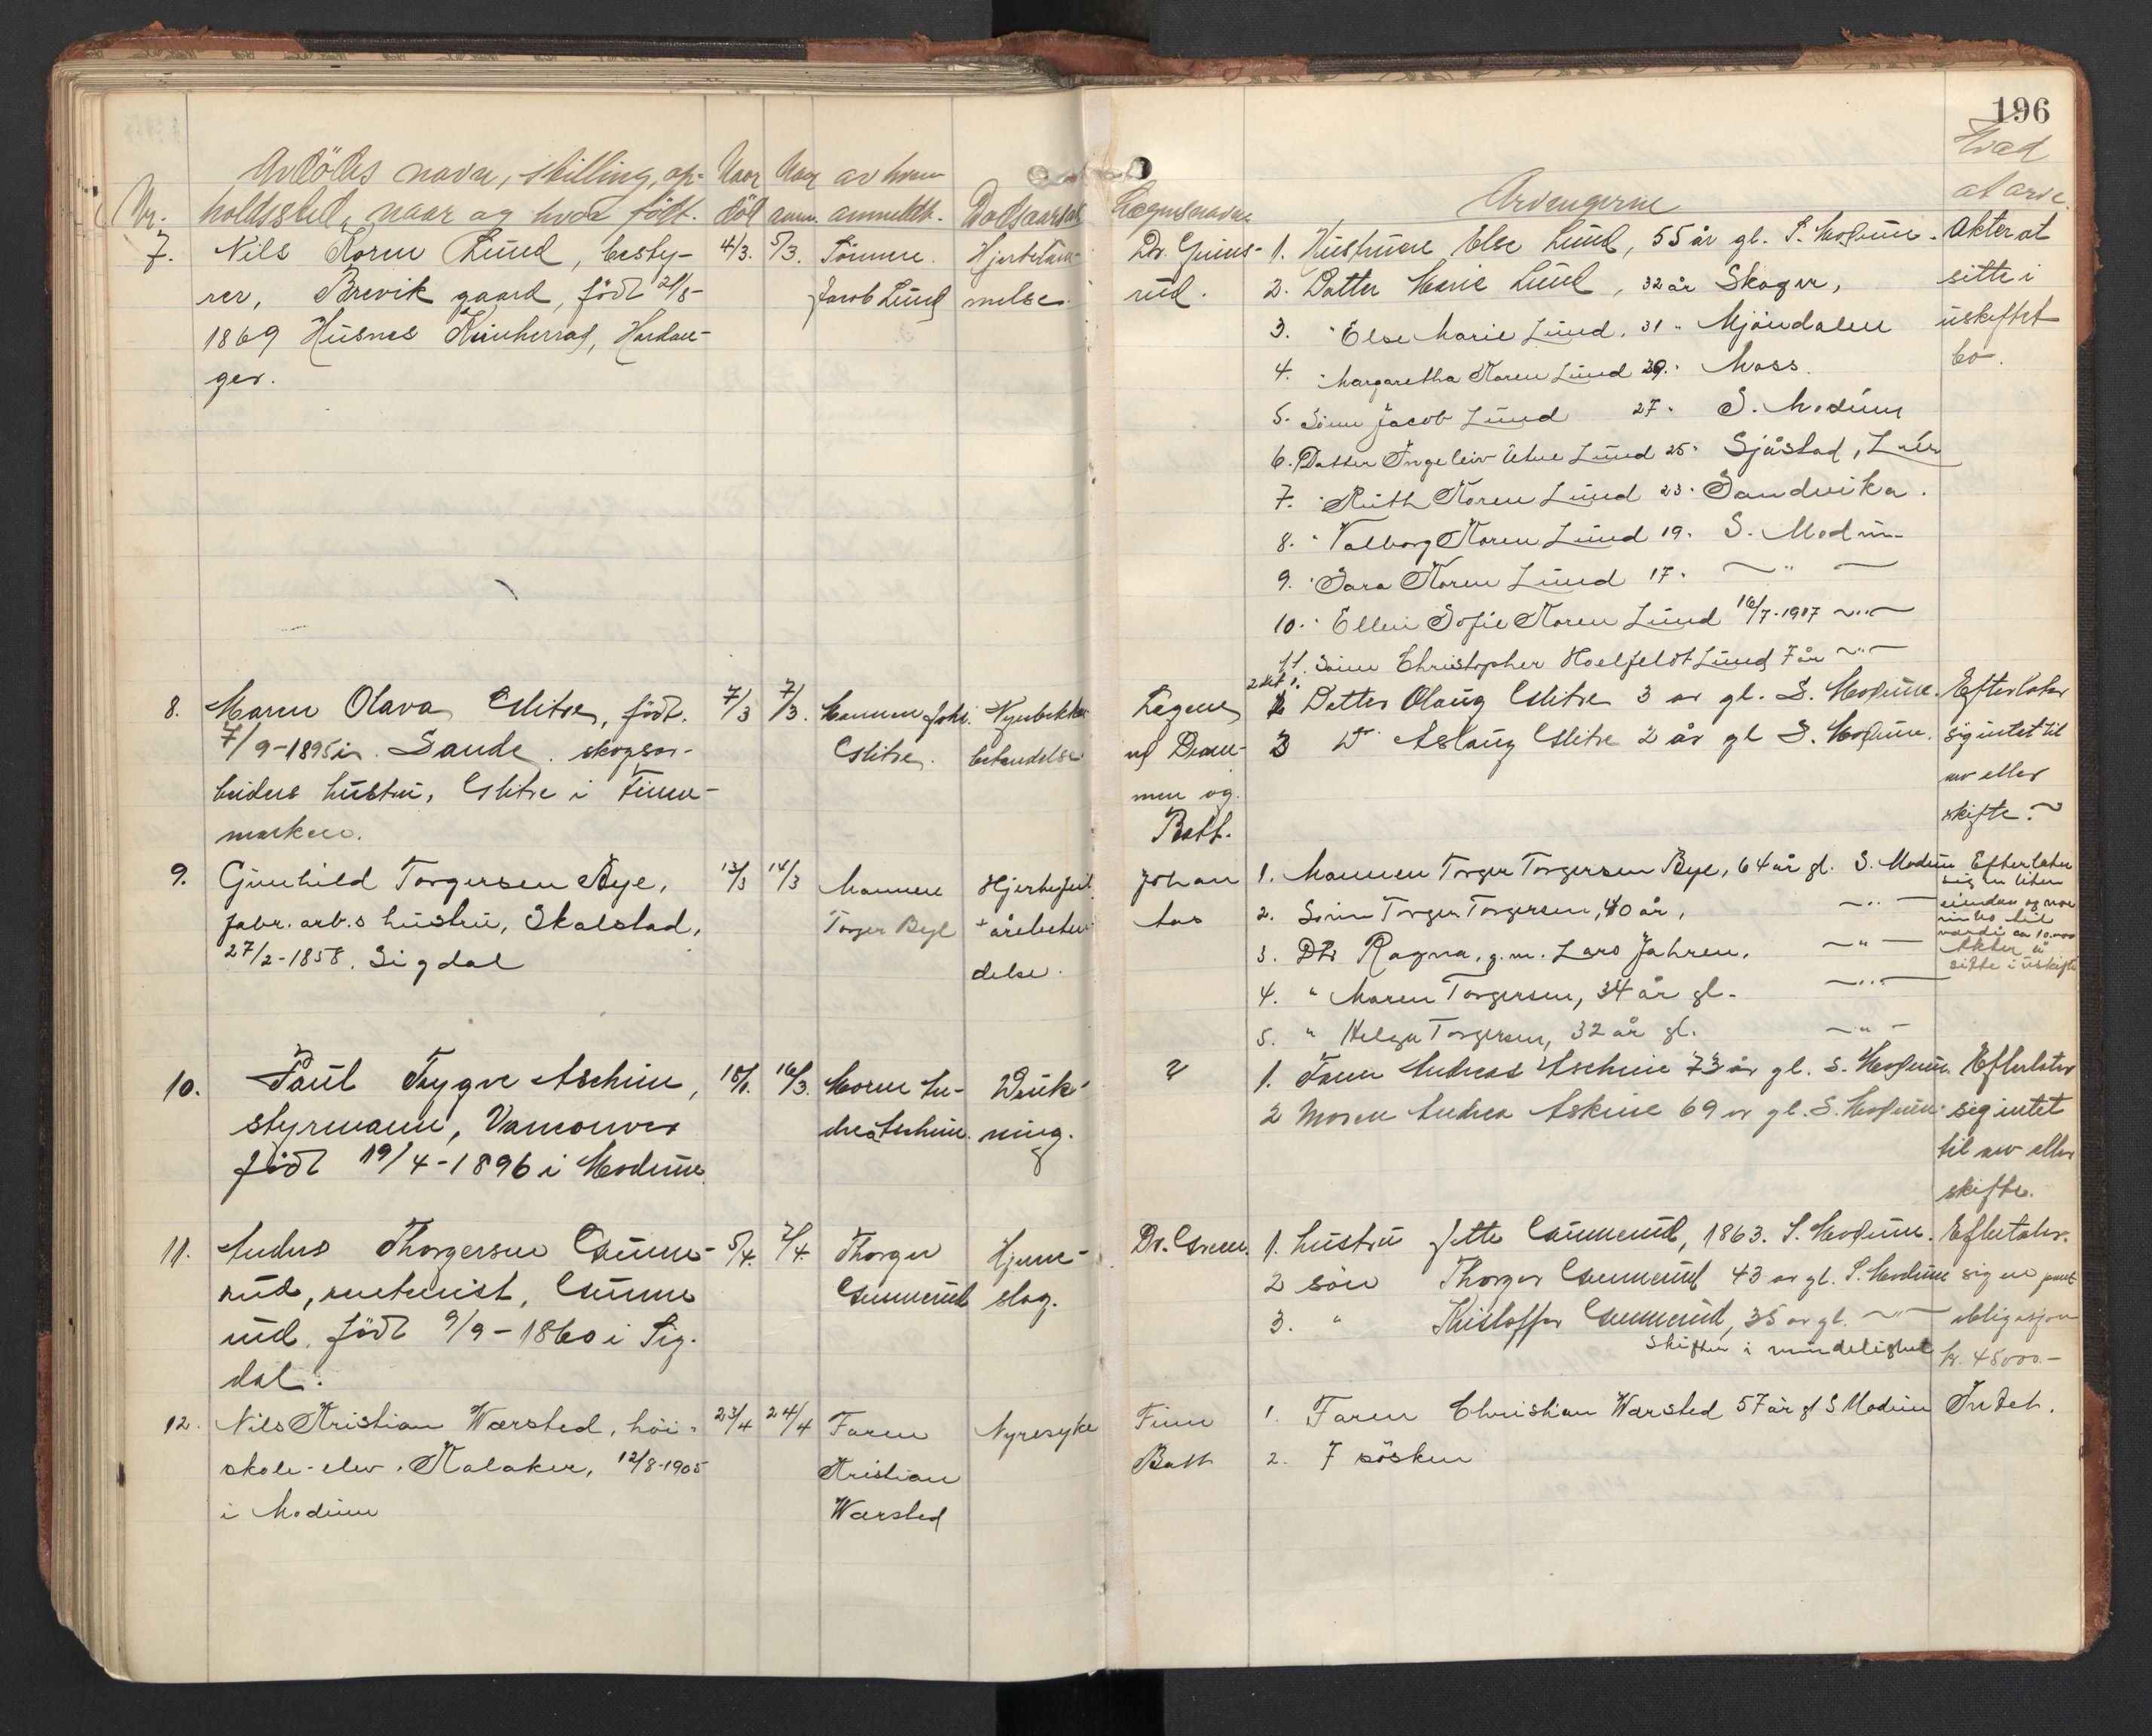 196
Nr.
Avdödes navn, stilling, op-
holdssted, naar og hvor födt.
Naar död
Naar anm.
av hvem anmeldt.
Dödsaarsak
Lægensnavn
Arvingerne
Hvad
at arve.
7. Nils Koren Lund, besty-
rer, Brevik gaard, födt 21/5-
1869 Husnes Kvinherrad, Hardan-
ger.
4/3. 5/3. Sönnen
Jacob Lund
Hjertelam-
melse.
Dr. Gunns-
rud.
1. Hustruen Else Lund, 55 år gl. S. Modum.
2. Datter Marie Lund, 32 år Skoger,
3. " Else Marie Lund, 31 " Mjöndalen
4. " Margaretha Koren Lund 29. " Moss.
5. Sönn Jacob Lund 27 " S. Modum
6. Datter Ingeleiv Lund 25 " Sjåstad, Lier
7. " Ruth Koren Lund 23 " Sandvika.
8. " Valborg Koren Lund 19. S. Modum
9. " Sara Koren Lund 17. — " —
10. " Ellen Sofie Koren Lund 16/7-1917 — " —
11. Sönn Christopher Hoelfeldt Lund 7 år — " —
Akter at
sitte i
uskiftet
bo.
8. Maren Olava Glitre, födt.
7/9-1895 i Sande. skogsar-
beiders hustru, Glitre i Finne-
marken.
7/3 7/3. Mannen Joh.
Glitre.
Nyrebekken
betendelse
Lægene
ved Dram-
men og.
Batt.
Datter Olaug Glitre 3 år gl. S. Modum.
Do Aslaug Glitre 2 år gl S. Modum.
Efterlater
sig intet til
arv eller
skifte.
9. Gunhild Torgersen Bye,
fabr. arb.s hustru, Skalstad,
27/2-1858. Sigdal
13/3 14/3 Mannen
Torger Bye
Hjertefeil
+ årebeten-
delse.
Johan
Aas
1. Mannen Torger Torgersen Bye, 64 år gl. S. Modum
2. Sönn Torger Torgersen, 40 år, — " —
3. Dtr Ragna, g.m. Lars Jahren. — " —
4. " Maren Torgersen, 34 år gl. — " —
5. " Helga Torgersen, 32 år gl. — " —
Efterlater
sig en liten
eiendom og noe
innbo til
verdi ca 10.000
Akter å
sitte i uskifte
10. Paul Trygve Aschim,
styrmann, Vancouver
födt 19/4-1896 i Modum.
15/1. 16/3. Moren An-
drea Aschim.
Druk-
ning.
?
1. Faren Andreas Aschim 73 år gl. S. Modum.
2 Moren Andrea Askim 69 år gl. S. Modum.
Efterlater
sig intet
til arv eller
skifte.
11. Anders Thorgersen Gunne-
rud, rentenist, Gunne
rud. födt 9/9-1860 i Sig-
dal.
5/4. 7/4. Thorger
Gunnerud
Hjerne-
slag.
Dr. Green.
1. hustru Jette Gunnerud, 1863. S. Modum.
2 sön Thorger Gunnerud 43 år gl. S. Modum
3. " Kristoffer Gunnerud, 35 år gl. — " —
Skifter i mindelighet
Efterlater.
sig en pant
obligasjon
kr. 45000.-
12. Nils Kristian Warsted, höi-
skole-elev. Kalaker, 12/8-1905
i Modum
23/4 24/4 Faren
Kristian
Warsted
Nyresyke
Finn
Batt
1. Faren Christian Warsted 57 år gl S Modum
2. 7 sösken
Intet.